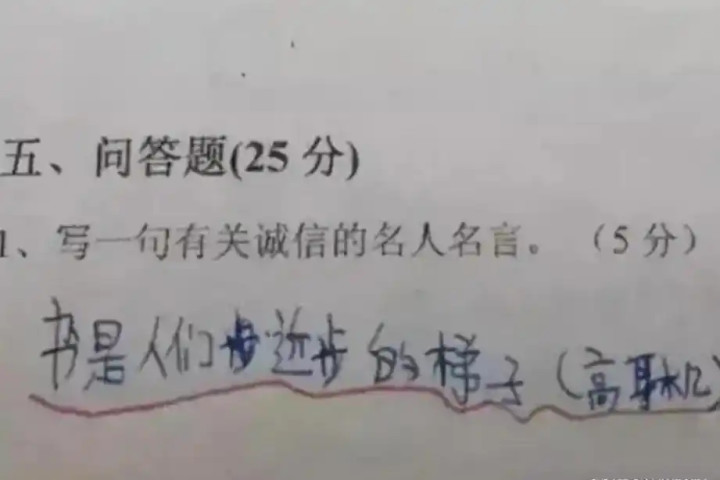 五、问答题(25 分)
1、写一句有关诚信的名人名言。（5 分）
书是人们进步的梯子（高耳机）